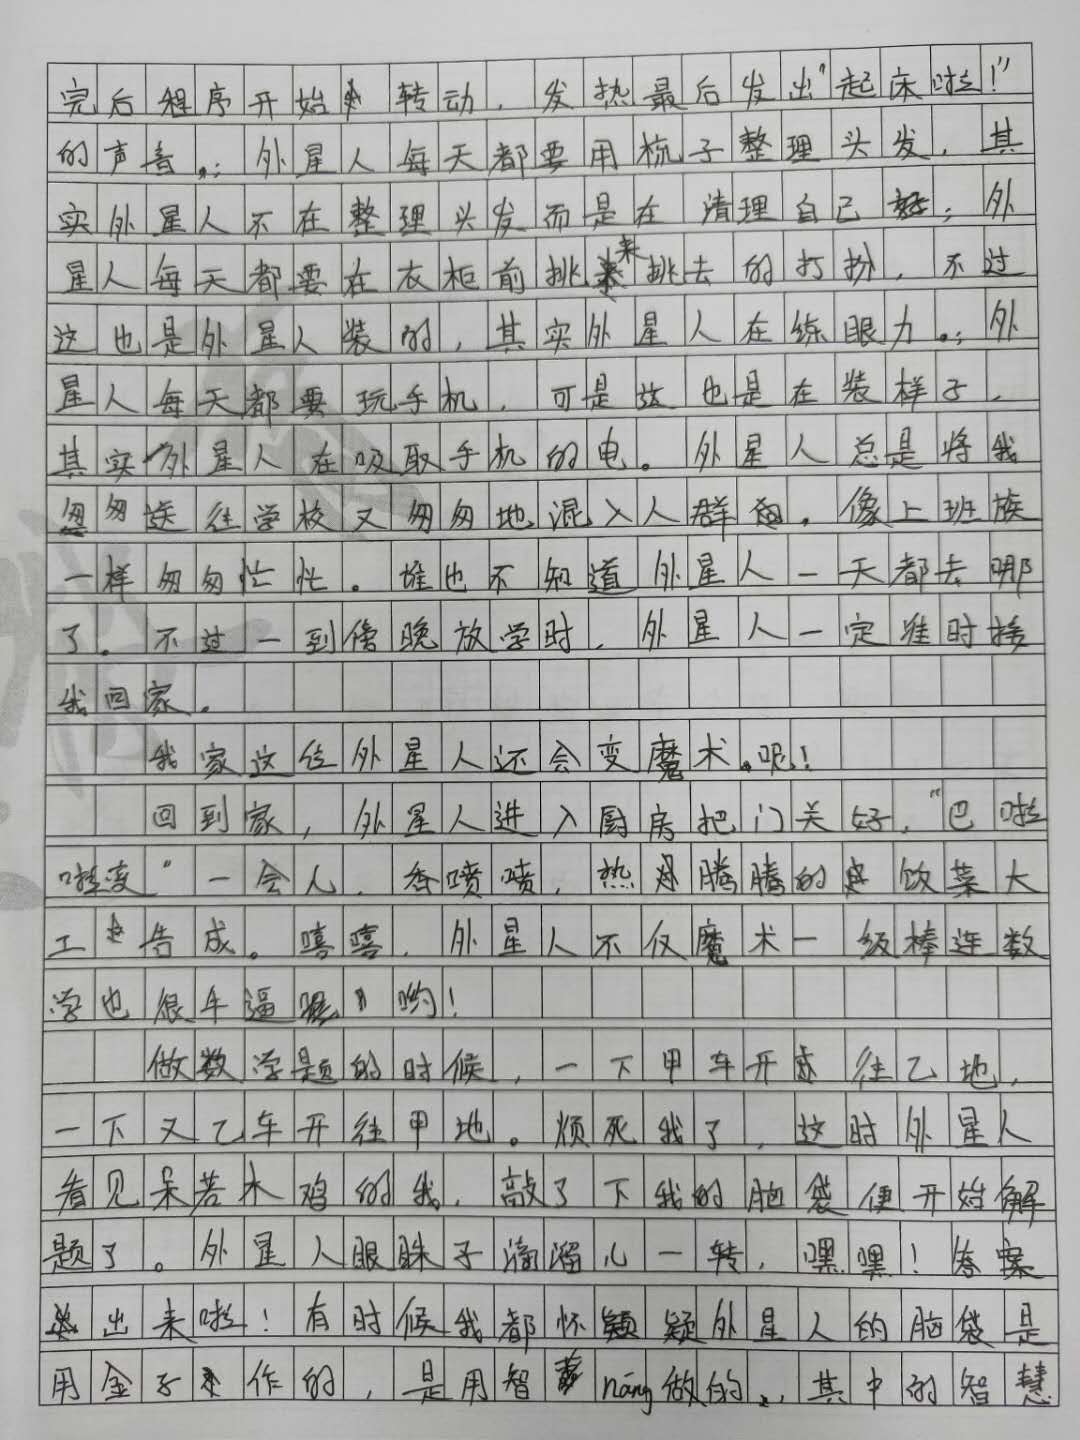 完后程序开始转动，发热最后发出“起床啦！”
的声音。；外星人每天都要用梳子整理头发，其
实外星人不在整理头发而是在清理自己；外
星人每天都要在衣柜前挑来挑去的打扮，不过
这也是外星人装的，其实外星人在练眼力。；外
星人每天都要玩手机，可是这也是在装样子，
其实外星人在吸取手机的电。外星人总是将我
匆匆送往学校又匆匆地混入人群，像上班族
一样匆匆忙忙。谁也不知道外星人一天都去哪
了。不过一到傍晚放学时，外星人一定准时接
我回家。
我家这位外星人还会变魔术呢！
回到家，外星人进入厨房把门关好，“巴啦
啦变”一会儿，香喷喷，热腾腾的饭菜大
工告成。嘻嘻，外星人不仅魔术一级棒连数
学也很牛逼哟！
做数学题的时候，一下甲车开往乙地，
一下又乙车开往甲地。烦死我了，这时外星人
看见呆若木鸡的我，敲了下我的脑袋便开始解
题了。外星人眼眯子滴溜儿一转，嘿嘿！答案
出来啦！有时候我都怀疑外星人的脑袋是
用金子作的，是用智nāng做的，其中的智慧